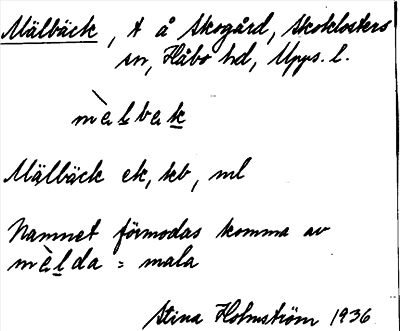 Mälbäck, t å Skogård, Skoklosters
sn, Håbo hd, Upps. l.
mèlbak
Mälbäck ek, kb, ml
Namnet förmodas komma av
mèlda = mala
Stina Holmström 1936